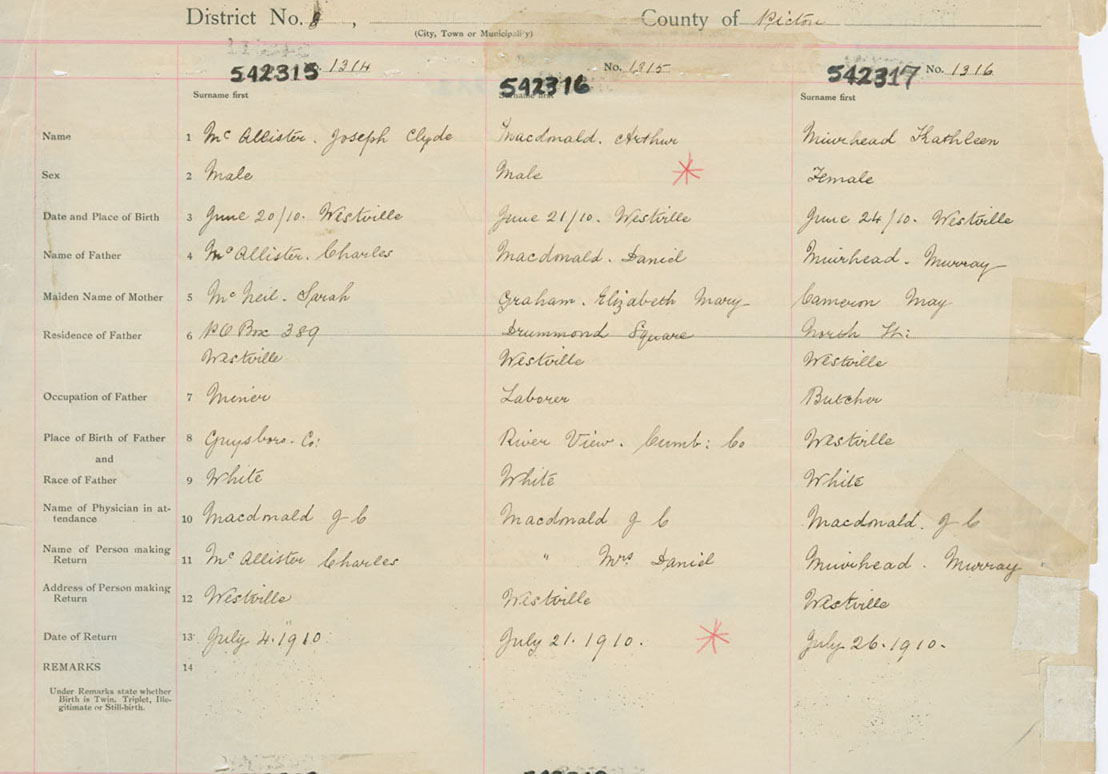 District No. 8, County of Pictou
(City, Town or Municipality)
542315 No. 1314 542316 No. 1315 542317 No. 1316
Surname first Surname first Surname first
Name 1 Mc Allister. Joseph Clyde Macdonald. Arthur Muirhead Kathleen
Sex 2 Male Male Female
Date and Place of Birth 3 June 20/10. Westville June 21/10. Westville June 24/10. Westville
Name of Father 4 Mc Allister. Charles Macdonald. Daniel Muirhead. Murray
Maiden Name of Mother 5 Mc Neil. Sarah Graham. Elizabeth Mary Cameron May
Residence of Father 6 P.O Box 389 Drummond Square North St:
Westville Westville Westville
Occupation of Father 7 Miner Laborer Butcher
Place of Birth of Father 8 Guysboro. Co: River View. Cumb: Co Westville
and
Race of Father 9 White White White
Name of Physician in at-
tendance 10 Macdonald J C Macdonald J C Macdonald. J C
Name of Person making
Return 11 Mc Allister Charles " Mrs Daniel Muirhead. Murray
Address of Person making
Return 12 Westville Westville Westville
Date of Return 13 July 4. 1910. July 21. 1910. July 26. 1910.
REMARKS 14
Under Remarks state whether
Birth is Twin, Triplet, Ille-
gitimate or Still-birth.